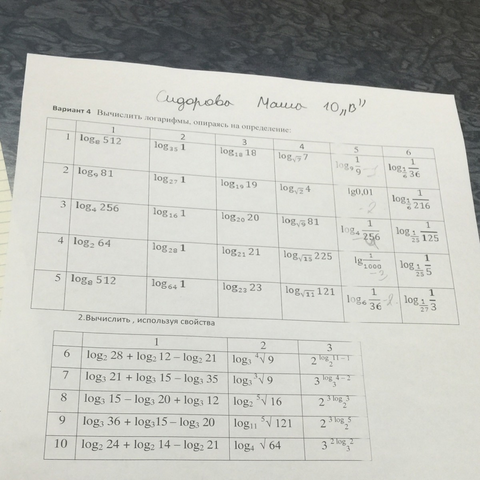 Сидорова Маша 10„В"
Вариант 4 Вычислить логарифмы, опираясь на определение:
1 2 3 4 5 6
1 log₈ 512 log₃₅ 1 log₁₈ 18 log_√7 7 log₉ 1/9 log_1/6 1/36
2 log₉ 81 log₂₇ 1 log₁₉ 19 log_√2 4 lg0,01 -2 log_1/6 1/216
3 log₄ 256 log₁₆ 1 log₂₀ 20 log_√9 81 log₄ 1/256 log_1/25 1/125
4 log₂ 64 log₂₈ 1 log₂₁ 21 log_√15 225 lg 1/1000 -3 log_1/25 1/5
5 log₈ 512 log₆₄ 1 log₂₃ 23 log_√11 121 log₆ 1/36 -2 log_1/27 1/3
2.Вычислить , используя свойства
1 2 3
6 log₂ 28 + log₂ 12 − log₂ 21 log₃ ⁴√ 9 2^log₂ 11 − 1
7 log₃ 21 + log₃ 15 − log₃ 35 log₃ ³√ 9 3^log₃ 4 − 2
8 log₃ 15 − log₃ 20 + log₃ 12 log₂ ⁵√ 16 2^3 log₂ 3
9 log₃ 36 + log₃15 − log₃ 20 log₁₁ ⁵√ 121 2^3 log₂ 5
10 log₂ 24 + log₂ 14 − log₂ 21 log₄ √ 64 3^2 log₃ 2